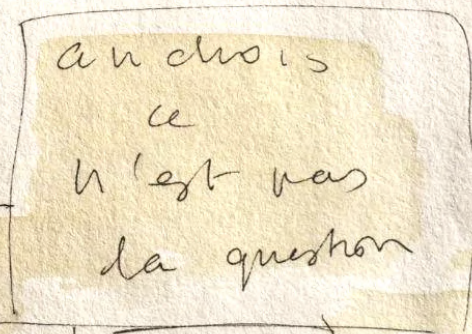 anchois
ce
n'est pas
la question